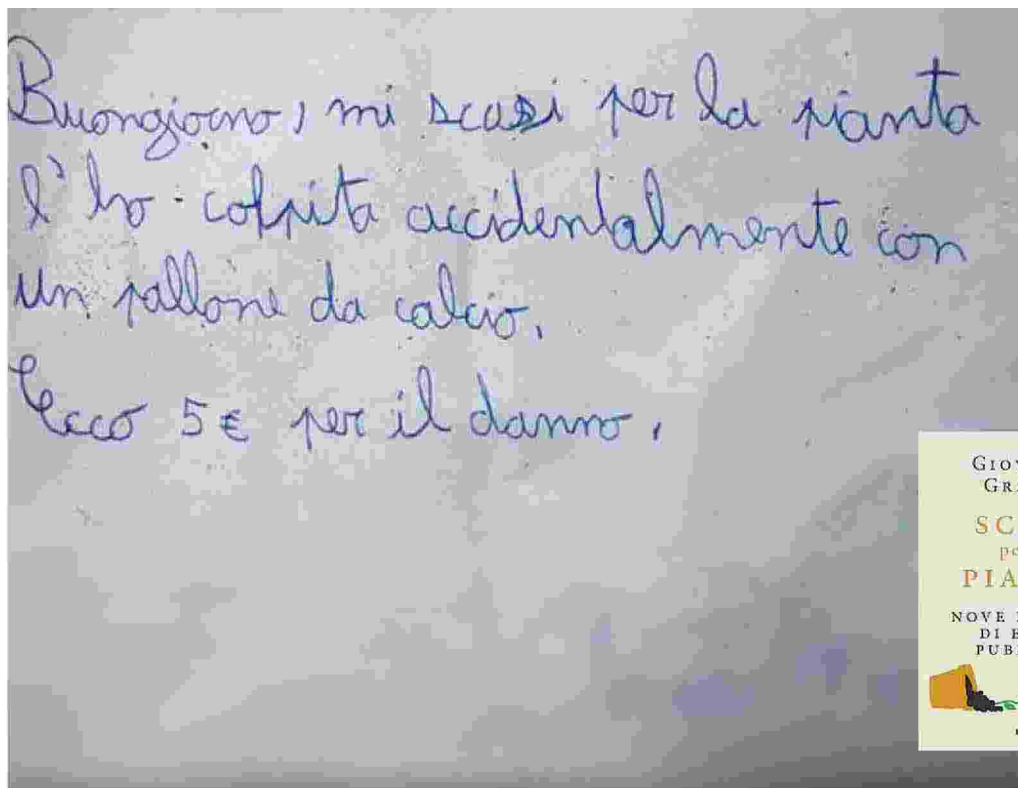 Buongiorno, mi scusi per la pianta
l'ho colpita accidentalmente con
un pallone da calcio.
Ecco 5€ per il danno.
GIOV
GR
SC
PIA
NOVE
DI E
PUB